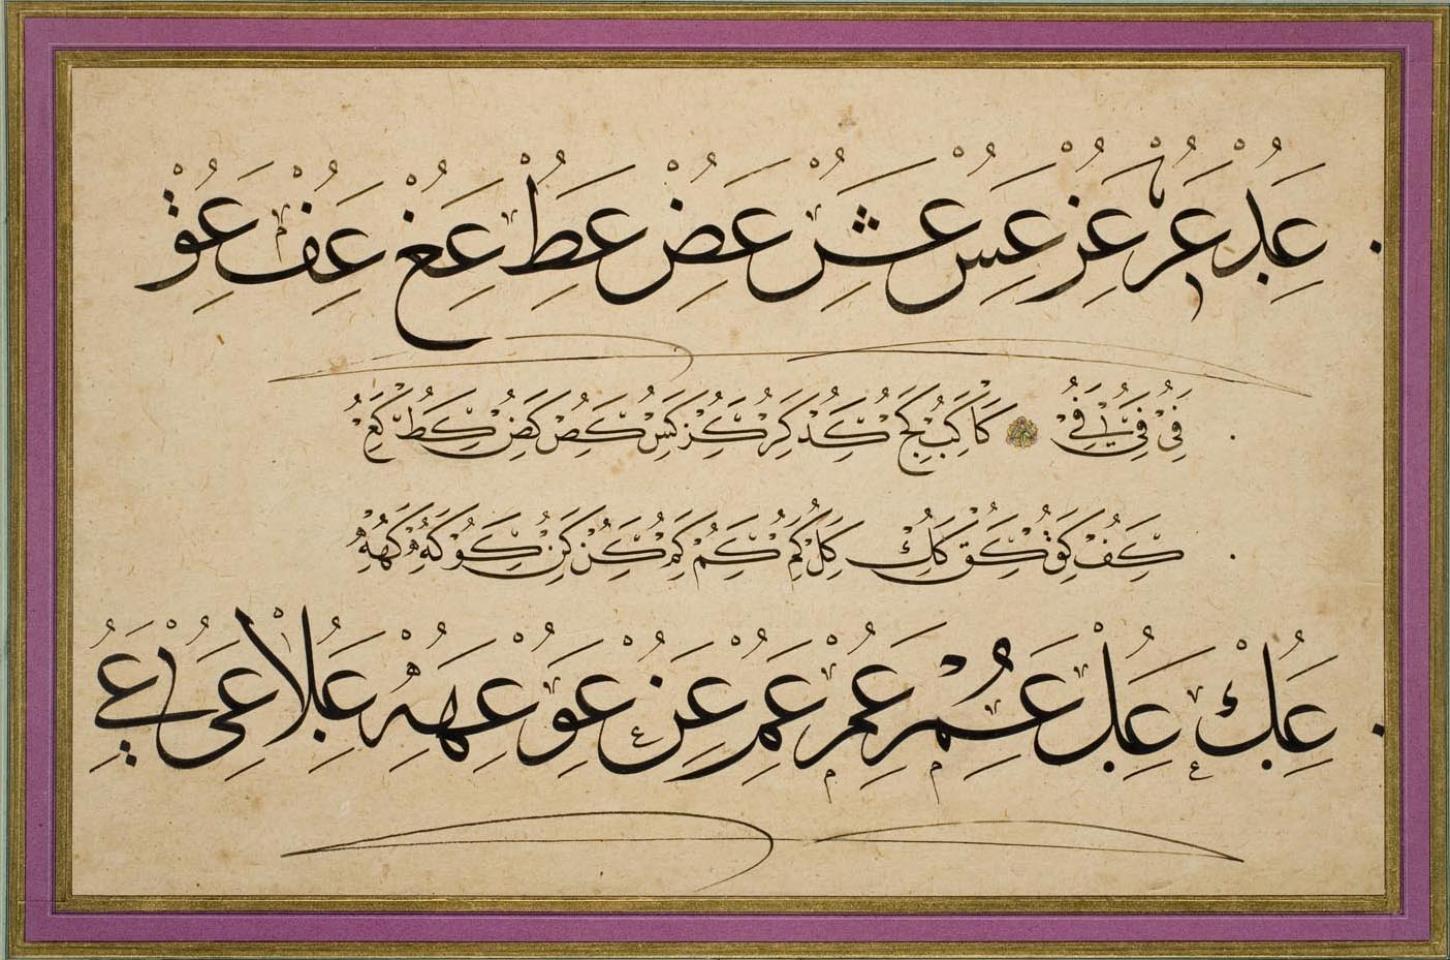 عد عر عز عس عش عض عط عغ عف عق
فى فى فے كا كب كج كد كر كز كس كص كض كط كع
كف كق كق كك كل كم كم كم كن كن كو كه كهه
عك عل عم عم عم عن عو عهه علا عى عے